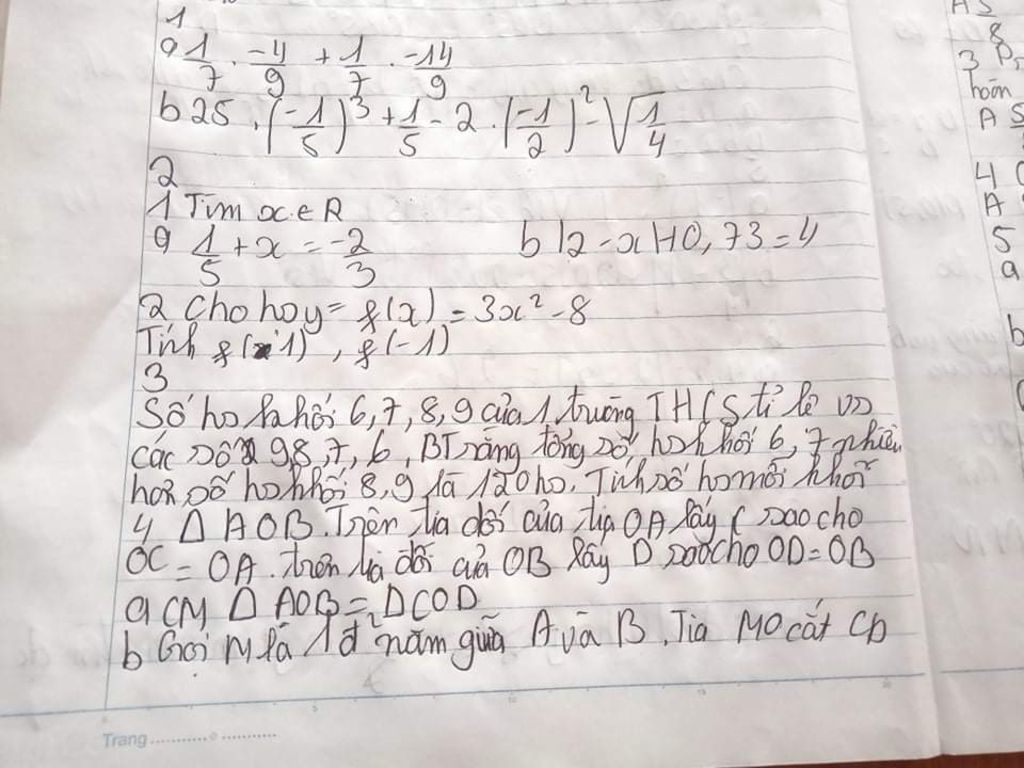 1
a 1/7 . -4/9 + 1/7 . -14/9
b 25 . (-1/5)³ + 1/5 - 2 . (-1/2)² - √1/4
2
1 Tìm x ∈ R
a 1/5 + x = -2/3 b |2 - x|+0,73 = 4
2 Cho hs y = f(x) = 3x² - 8
Tính f(1), f(-1)
3
Số hs khối 6,7,8,9 của 1 trường THCS tỉ lệ vs
các số 9 8, 7, 6, BT rằng tổng số hs khối 6, 7 nhiều
hơn số hs khối 8,9 là 120 hs. Tính số hs mỗi khối
4 Δ AOB. Trên tia đối của tia OA lấy C sao cho
OC = OA. trên tia đối của OB lấy D sao cho OD = OB
a CM Δ AOB = ΔCOD
b Gọi M là 1 đ² nằm giữa A và B. Tia MO cắt CD
Trang
A 5
8
3
hoàn
A 5
4
A
5
a
b